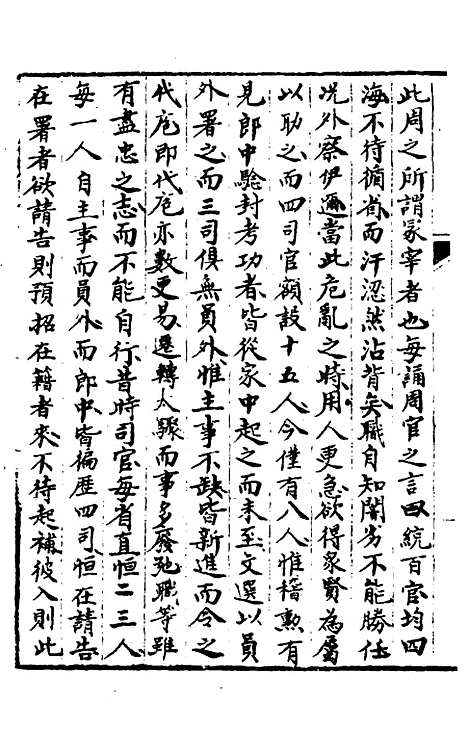 此周之所謂冢宰者也每誦周官之言曰統百官均四
海不待循省而汗忽然沾背矣職自知闇劣不能勝任
況外察伊邇當此危亂之時用人更急欲得眾賢為屬
以助之而四司官額設十五人今僅有八人惟稽勲有
見郎中驗封考功者皆從家中起之而未至文選以員
外署之而三司俱無員外惟主事不缺皆新進而令之
代庖即代庖亦數更易遷轉人驟而事多廢弛職等雖
有盡忠之志而不能自行昔時司官每省直恒二三人
每一人自主事而員外而郎中皆徧歷四司恒在請告
在署者欲請告則預招在籍者來不待起補彼入則此